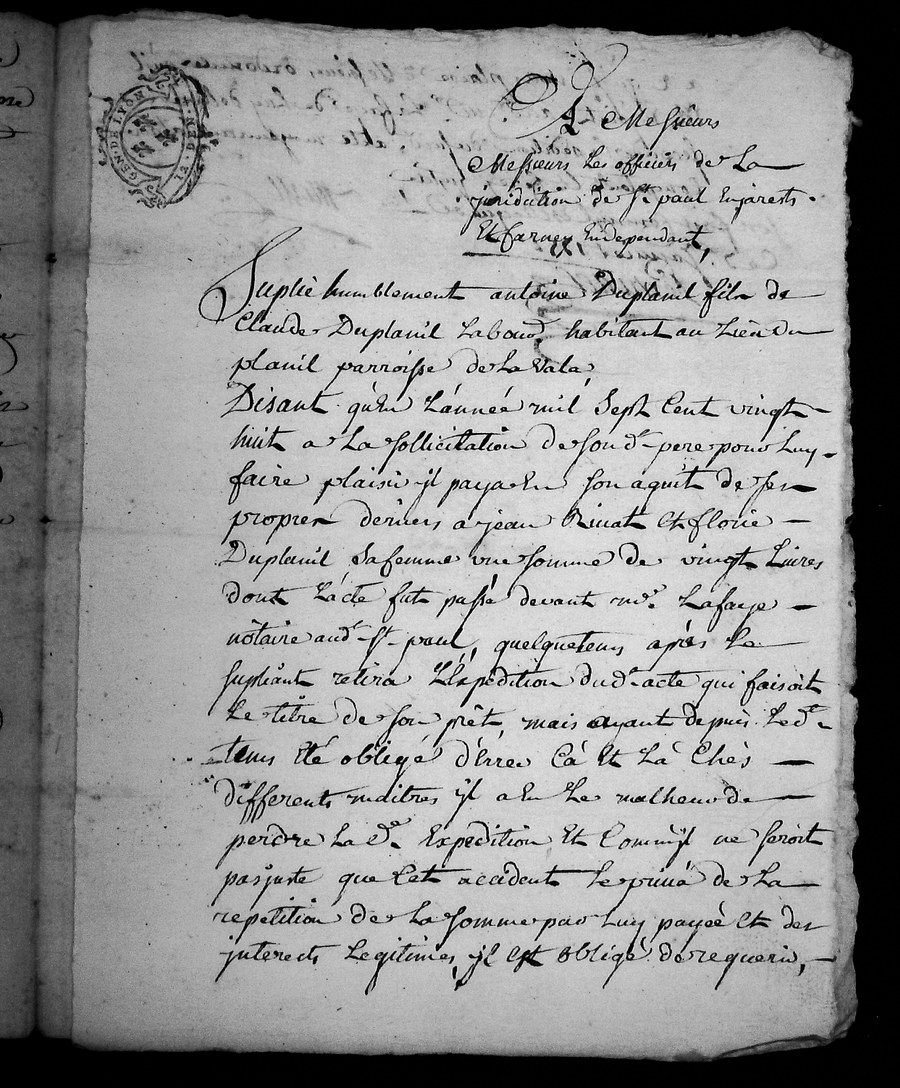 GEN. DE LYON
A Messieurs
Messieurs Les officiers de La
juridiction de St. paul Enjarests
Et farney Independant,
Suplie humblement antoine Duplanil fils de
Claude Duplanil Labour. habitant au Lieu du
planil parroisse de La Vala,
Disant qu'En L'année mil Sept Cent vingt-
huit a La sollicitation de son d. pere pour Luy-
faire plaisir jl paya En son aquit de ses
propres deniers a jean Rivat et florie -
Duplanil Sa femme vne somme de vingt Livres
dont L'acte fut passé devant me. Lafaye -
nôtaire aud. St. paul, quelquetems après Le
supliant retira L'Expedition dud. acte qui faisoit
Le titre de son prêt, mais ayant depuis Led.
tems été obligé d'Errer Cà Et Là Chès -
differents maitres jl a Eu Le malheur de
perdre Lade. Expedition Et Comm'jl ne seroit
pas juste que Cet accident Le priva de La
repetition de La somme par Luy payeé et des
jnterests Legitimes, jl Est obligé de requerir, -